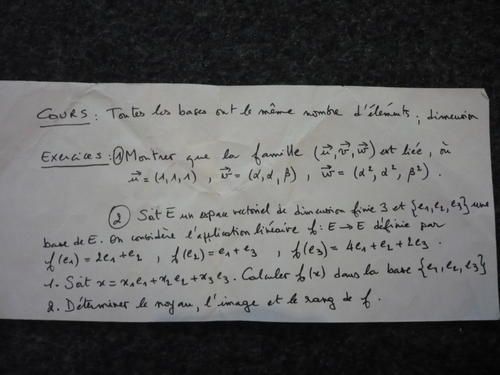 COURS : Toutes les bases ont le même nombre d'éléments ; dimension
Exercices : ① Montrer que la famille (u⃗, v⃗, w⃗) est liée, où
u⃗ = (1, 1, 1) , w⃗ = (α, α, β) , w⃗ = (α², α², β²) .
② Soit E un espace vectoriel de dimension finie 3 et {e₁, e₂, e₃} une
base de E. On considère l'application linéaire f : E → E définie par
f(e₁) = 2e₁ + e₂ , f(e₂) = e₁ + e₃ , f(e₃) = 4e₁ + e₂ + 2e₃ .
1. Soit x = x₁e₁ + x₂e₂ + x₃e₃ . Calculer f(x) dans la base {e₁, e₂, e₃}
2. Déterminer le noyau, l'image et le rang de f .